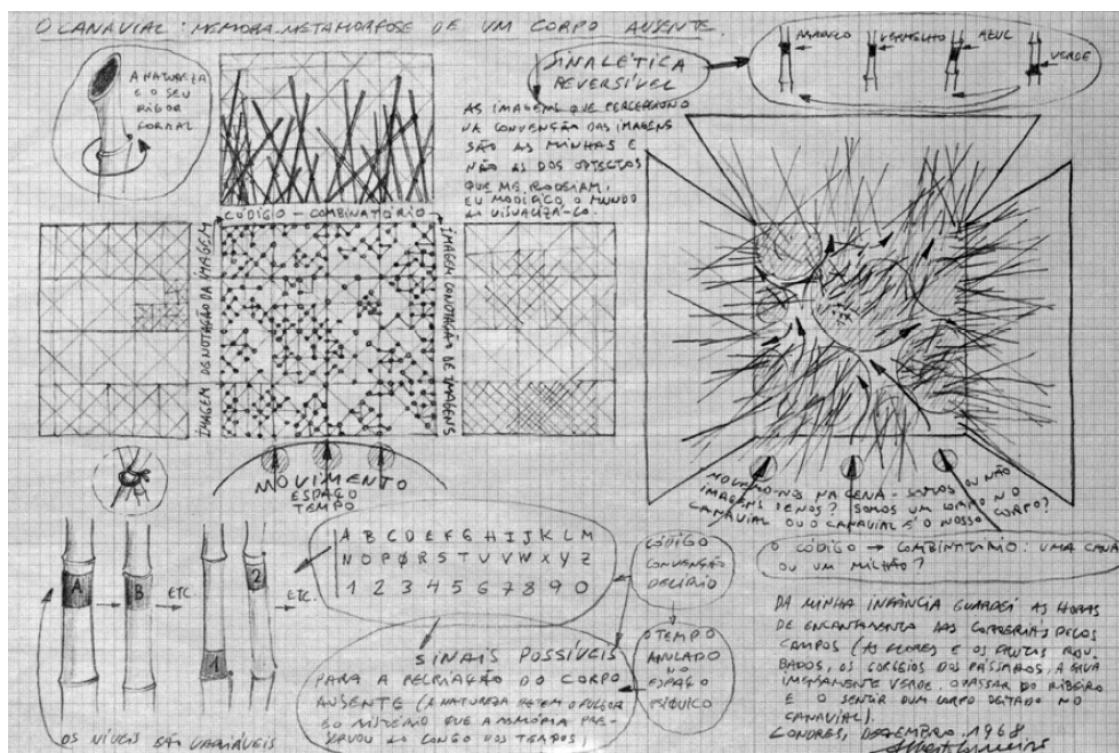 O CANAVIAL: MEMORA-METAMORFOSE DE UM CORPO AUSENTE.
A NATUREZA
E O SEU
RIGOR
FORMAL
SINALÉTICA
REVERSÍVEL
AMARELO
VERMELHO
AZUL
VERDE
AS IMAGENS QUE PERCEPCIONO
NA CONVENÇÃO DAS IMAGENS
SÃO AS MINHAS E
NÃO AS DOS OBJECTOS
QUE ME RODEIAM,
EU MODIFICO O MUNDO
AO VISUALIZÁ-LO.
CÓDIGO - COMBINATÓRIO
IMAGEM DENOTAÇÃO DA IMAGEM
IMAGEM CONOTAÇÃO DE IMAGENS
MOVIMENTO
ESPAÇO
TEMPO
MOVEMO-NOS NA CENA - SOMOS OU NÃO
IMAGENS DE NÓS? SOMOS UM CORPO NO
CANAVIAL OU O CANAVIAL É O NOSSO CORPO?
O CÓDIGO → COMBINATÓRIO: UMA CANA
OU UM MILHÃO?
A
B
ETC
1
2
ETC.
OS NÍVEIS SÃO VARIÁVEIS
A B C D E F G H I J K L M
N O P Ø R S T U V W X Y Z
1 2 3 4 5 6 7 8 9 0
CÓDIGO
CONVENÇÃO
DELÍRIO
SINAIS POSSÍVEIS
PARA A RECRIAÇÃO DO CORPO
AUSENTE (A NATUREZA RETEM O FULGOR
E O MISTÉRIO QUE A MEMÓRIA PRE-
SERVOU AO LONGO DOS TEMPOS)
O TEMPO
ANULADO
NO
ESPAÇO
PSÍQUICO
DA MINHA INFÂNCIA GUARDEI AS HORAS
DE ENCANTAMENTO DAS CORRERIAS PELOS
CAMPOS (AS FLORES E OS FRUTOS ROU-
BADOS, OS GORGEIOS DOS PÁSSAROS, A
IMENSAMENTE VERDE, O PASSAR DO RIBEIRO
E O SENTIR DUM CORPO DEITADO NO
CANAVIAL).
LONDRES, DEZEMBRO, 1968